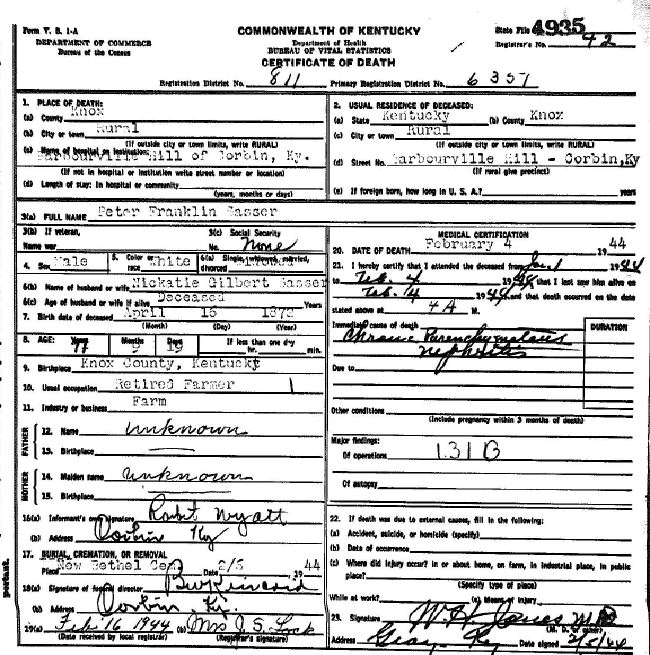 Form V. S. 1-A
DEPARTMENT OF COMMERCE
Bureau of the Census
COMMONWEALTH OF KENTUCKY
Department of Health
BUREAU OF VITAL STATISTICS
CERTIFICATE OF DEATH
State File 4935
Registrar's No. 42
Registration District No. 811 Primary Registration District No. 6351
1. PLACE OF DEATH:
(a) County Knox
(b) City or town Rural
(If outside city or town limits, write RURAL)
(c) Name of hospital or institution: Barbourville Hill of Corbin, Ky.
(If not in hospital or institution write street number or location)
(d) Length of stay: In hospital or community
(years, months or days)
2. USUAL RESIDENCE OF DECEASED:
(a) State Kentucky (b) County Knox
(c) City or town Rural
(If outside city or town limits, write RURAL)
(d) Street No. Barbourville Hill - Corbin, Ky
(If rural give precinct)
(e) If foreign born, how long in U. S. A.? years
3(a) FULL NAME Peter Franklin Gasser
3(b) If veteran, Name war
3(c) Social Security No. None
4. Sex Male 5. Color or race White 6(a) Single, widowed, married, divorced
6(b) Name of husband or wife Nickatie Gilbert Gasser
6(c) Age of husband or wife if alive Deceased Years
7. Birth date of deceased April 15 1872
(Month) (Day) (Year)
8. AGE: 9 19 If less than one day hr. min.
9. Birthplace Knox County, Kentucky
10. Usual occupation Retired Farmer
11. Industry or business Farm
FATHER
12. Name unknown
13. Birthplace
MOTHER
14. Maiden name unknown
15. Birthplace
16(a) Informant's own signature Robt Wyatt
(b) Address Corbin Ky
17. BURIAL, CREMATION, OR REMOVAL
Place New Bethel Cem. Date 2/5 1944
18(a) Signature of funeral director
(b) Address Corbin Ky.
19(a) Feb 16 1944 (b) Mrs J. S. Lock
(Date received by local registrar) (Registrar's signature)
MEDICAL CERTIFICATION
20. DATE OF DEATH February 4 1944
21. I hereby certify that I attended the deceased from Jan 1 1944
to Feb. 4 1944 that I last saw him alive on
Feb. 4 1944 and that death occurred on the date
stated above at 4 A M.
Immediate cause of death Chronic Parenchymatous
nephritis
DURATION
Due to
Other conditions
(Include pregnancy within 3 months of death)
Major findings:
Of operations 131B
Of autopsy
22. If death was due to external causes, fill in the following:
(a) Accident, suicide, or homicide (specify)
(b) Date of occurrence
(c) Where did injury occur? in or about home, on farm, in industrial place, in public
place?
(Specify type of place)
While at work? (e) Means of injury
23. Signature W H Jones M D
(M. D. or other)
Address Gray Ky Date signed 2/5/44
portant.